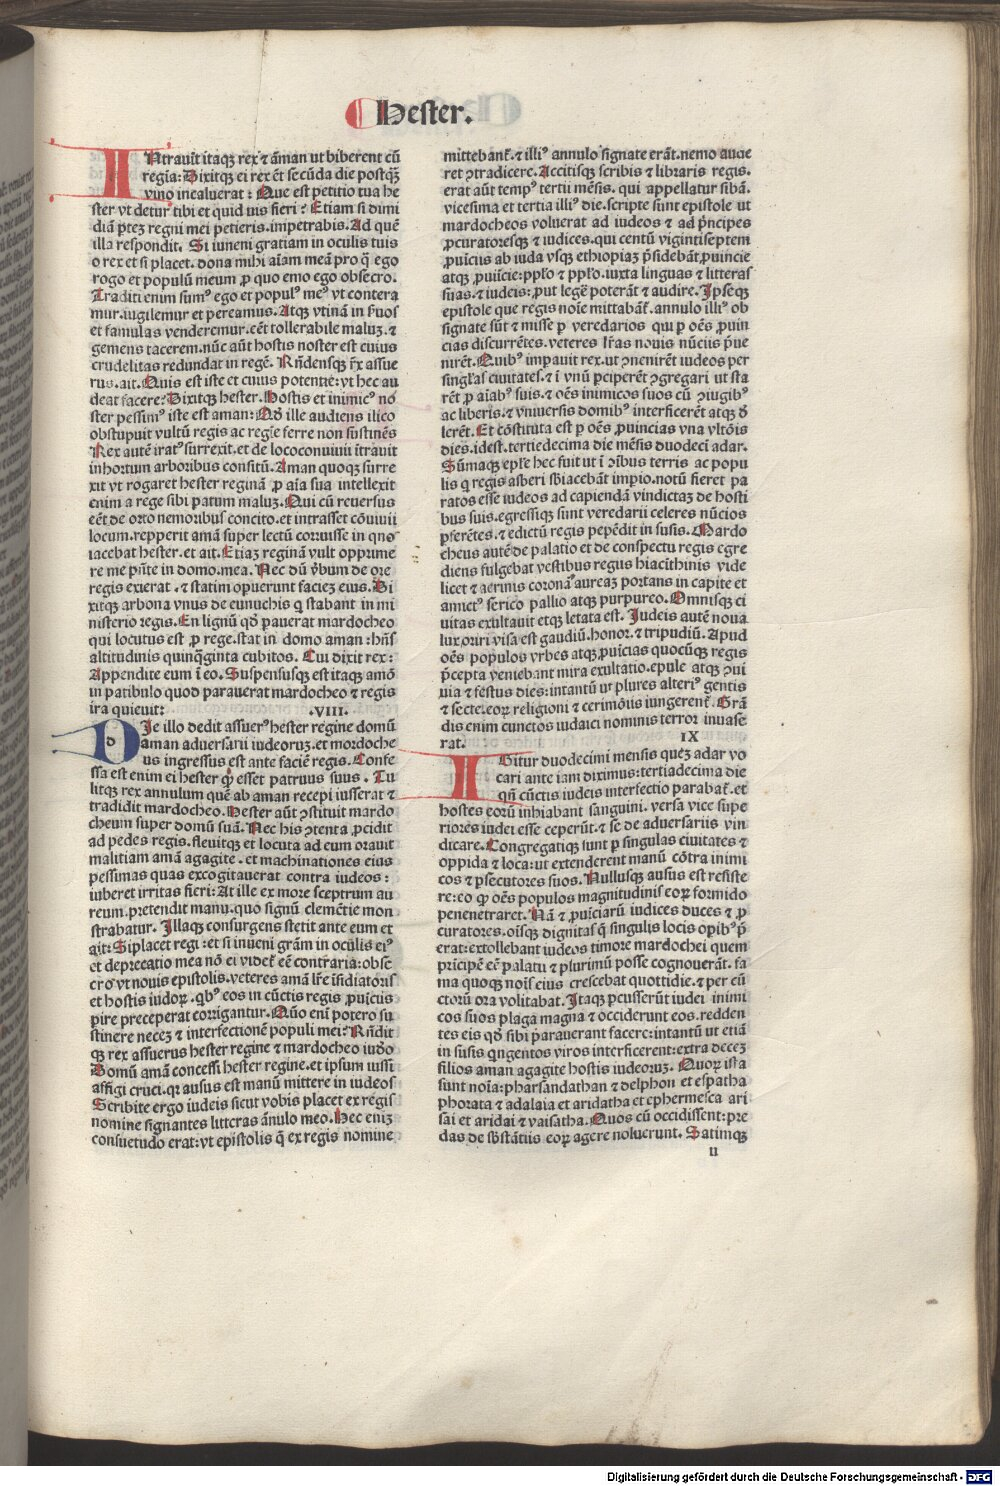 Hester.
INtrauit itaqꝫ rex ⁊ amã ut biberent cũ
regia: Dixitqꝫ ei rex ẽt secũda die postqꝫ̃
vino incaluerat: Que est petitio tua he
ster vt detur tibi et quid uis fieri? Etiam si dimi
diã ptẽ regni mei petieris.impetrabis. Ad quẽ
illa respondit. Si iuneni gratiam in oculis tuis
o rex et si placet. dona mihi aĩam meã pro q̃ ego
rogo et populũ meum ꝓ quo emo ego obsecro.
Traditi enim sumꝰ ego et populꝰ meꝰ vt contera
mur.iugilemur et pereamus. Atqꝫ vtinã in ẜuos
et famulas venderemur.eẽt tollerabile maluꝫ.⁊
gemens tacerem.nũc aũt hostis noster est cuius
crudelitas redundat in regẽ. Rñdensqꝫ r̃x assue
rus.ait. Quis est iste et cuius potentie:vt hec au
deat facere? Dixitqꝫ hester. Hostis et inimicꝰ no
ster pessimꝰ iste est aman: Qð ille audiens ilico
obstupuit vultũ regis ac regie ferre non sustinẽs
Rex autẽ iratꝰ surrexit.et de lococonuiuii itrauit
inhortum arboribus consitũ. Aman quoqꝫ surre
xit vt rogaret hester reginã ꝓ aĩa sua intellexit
enim a rege sibi patum maluꝫ. Qui cũ reuersus
eẽt de orto nemoribus concito.et intrasset cõuiuii
locum.repperit amã super lectũ corruisse in quo
iacebat hester.et ait. Etiaꝫ reginã vult opprime
re me pñte in domo.mea. Nec dũ ṽbum de ore
regis exierat .⁊ statim opuerunt facieꝫ eius. Di
xitqꝫ arbona vnus de eunuchis q̃ stabant in mi
nisterio regis. En lignũ qð pauerat mardocheo
qui locutus est ꝓ rege.stat in domo aman:hñs
altitudinis quinq̃ginta cubitos. Cui dixit rex:
Appendite eum ĩ eo. Suspensusqꝫ est itaqꝫ amã
in patibulo quod parauerat mardocheo ⁊ regis
ira quieuit: .VIII.
DIe illo dedit assuerꝰ hester regine domũ
aman aduersarii iudeoruꝫ.et mordoche
us ingressus est ante faciẽ regis. Confe
ssa est enim ei hester q̃ esset patruus suus . Tu
litqꝫ rex annulum quẽ ab aman recepi iusserat ⁊
tradidit mardocheo. Hester aũt ꝯstituit mardo
cheum super domũ suã. Nec his ꝯtenta ꝓcidit
ad pedes regis.fleuitqꝫ et locuta ad eum orauit
malitiam amã agagite .et machinationes eius
pessimas quas excogitauerat contra iudeos:
iuberet irritas fieri: At ille ex more sceptrum au
reum.pretendit manu.quo signũ clemẽtie mon
strabatur. Illaqꝫ consurgens stetit ante eum et
ait: Siplacet regi:et si inueni grãm in oculis eiꝰ
et deprecatio mea nõ ei videt̃ eẽ contraria:obse
cro vt nouis epistolis.veteres amã lr̃e ĩsidiatoris
et hostis iudoꝝ.qbꝰ eos in cũctis regis ꝓuĩciis
pire preceperat corrigantur. Quo eni potero su
stinere neceꝫ ⁊ interfectionẽ populi mei? Rñdit
qꝫ rex assuerus hester regine ⁊ mardocheo iudo
Domũ amã concessi hester regine.et ipsum iussi
affigi cruci.qꝛ ausus est manũ mittere in iudeos
Scribite ergo iudeis sicut vobis placet ex regis
nomine signantes litteras ãnulo meo. Hec eniꝫ
consuetudo erat:vt epistolis q̃ ex regis nomine
mittebanť.⁊ illiꝰ annulo signate erãt.nemo aude
ret ꝯtradicere. Accitisqꝫ scribis ⁊ libraris regis.
erat aũt tempꝰ tertii mẽsis. qui appellatur sibã.
vicesima et tertia illiꝰ die.scripte sunt epistole ut
mardocheos voluerat ad iudeos ⁊ ad p̃ncipes
ꝓcuratoresqꝫ ⁊ iudices.qui centũ vigintiseptem
ꝓuĩciis ab iuda vsqꝫ ethiopiaꝫ p̃sidebãt.ꝓuincie
atqꝫ ꝓuĩcie:pplo ⁊ pplo.iuxta linguas ⁊ litteras
suas.⁊ iudeis:ꝓut legẽ poterãt ⁊ audire. Ipseqꝫ
epistole que regis noĩe mittabãt̃.annulo illiꝰ ob
signate sũt ⁊ misse ꝑ veredarios qui ꝑ oẽs ꝓuin
cias discurrẽtes.veteres lr̃as nouis nũciis p̃ue
nirẽt. Quibꝰ imꝑauit rex.ut ꝯuenirẽt iudeos per
singlas ciuitates.⁊ ĩ vnũ pciperẽt ꝯgregari ut sta
rẽt ꝓ aĩabꝰ suis.⁊ oẽs inimicos suos cũ ꝯiugibꝰ
ac liberis.⁊ vniuersis domibꝰ interficerẽt atqꝫ d̃
lerẽt. Et cõstituta est ꝑ oẽs ꝓuincias vna vltõis
dies.idest.tertiedecima die mẽsis duodeci adar.
Sũmaqꝫ eple hec fuit ut ĩ oĩbus terris ac popu
lis q̃ regis asueri sbiacebãt imꝑio.notũ fieret pa
ratos esse iudeos ad capiendã vindictaꝫ de hosti
bus suis.egressiqꝫ sunt veredarii celeres nũcios
pferẽtes.⁊ edictũ regis pepẽdit in susis. Mardo
cheus autẽ de palatio et de conspectu regis egre
diens fulgebat vestibus regus hiacĩthinis vide
licet ⁊ aerinis coronã aureaꝫ portans in capite et
amictꝰ serico pallio atqꝫ purpureo. Omnisqꝫ ci
uitas exultauit etqꝫ letata est. Iudeis autẽ noua
lux oriri visa est gaudiũ.honor.⁊ tripudiũ. Apud
oẽs populos vrbes atqꝫ ꝓuĩcias quocũqꝫ regis
p̃cepta veniebant mira exultatio.epule atqꝫ ꝯui
uia ⁊ festus dies:intantũ ut plures alteriꝰ gentis
⁊ secte.eoꝝ religioni ⁊ cerimõiis iungerent̃. Grã
dis enim cunctos iudaici nominis terror inuase
rat. IX
IGitur duodecimi mensis queꝫ adar vo
cari ante iam diximus:tertiadecima die
qñ cũctis iudeis interfectio parabat̃.et
hostes eorũ inhiabant sanguini. versa vice supe
riores iudei esse ceperũt.⁊ se de aduersariis vin
dicare. Congregatiqꝫ sunt ꝑ singulas ciuitates ⁊
oppida ⁊ loca:ut extenderent manũ cõtra inimi
cos ⁊ ꝑsecutores suos. Nullusqꝫ ausus est resiste
re:eo q̃ oẽs populos magnitudinis eoꝝ formido
penenetraret. Nã ⁊ ꝓuiciarũ iudices duces ⁊ ꝓ
curatores.oĩsqꝫ dignitas q̃ singulis locis opibꝰ p̃
erat:extollebant iudeos timore mardochei quem
prĩcipẽ eẽ palatii ⁊ plurimũ posse cognouerãt. fa
ma quoqꝫ noĩs eius crescebat quottidie.⁊ per cũ
ctorũ ora volitabat. Itaqꝫ pcusserũt iudei inimi
cos suos plaga magna ⁊ occiderunt eos.redden
tes eis qð sibi parauerant facere:intantũ ut etiã
in susis qngentos viros interficerent:extra deceꝫ
filios aman agagite hostis iudeoruꝫ. Quoꝝ ista
sunt noĩa:pharsandathan ⁊ delphon et espatha
phorata ⁊ adalaia et aridatha et ephermesca ari
sai et aridai ⁊ vaisatha. Quos cũ occidissent:pre
das de sbstãtiis eoꝝ agere noluerunt. Satimqꝫ
u
Digitalisierung gefördert durch die Deutsche Forschungsgemeinschaft - DFG